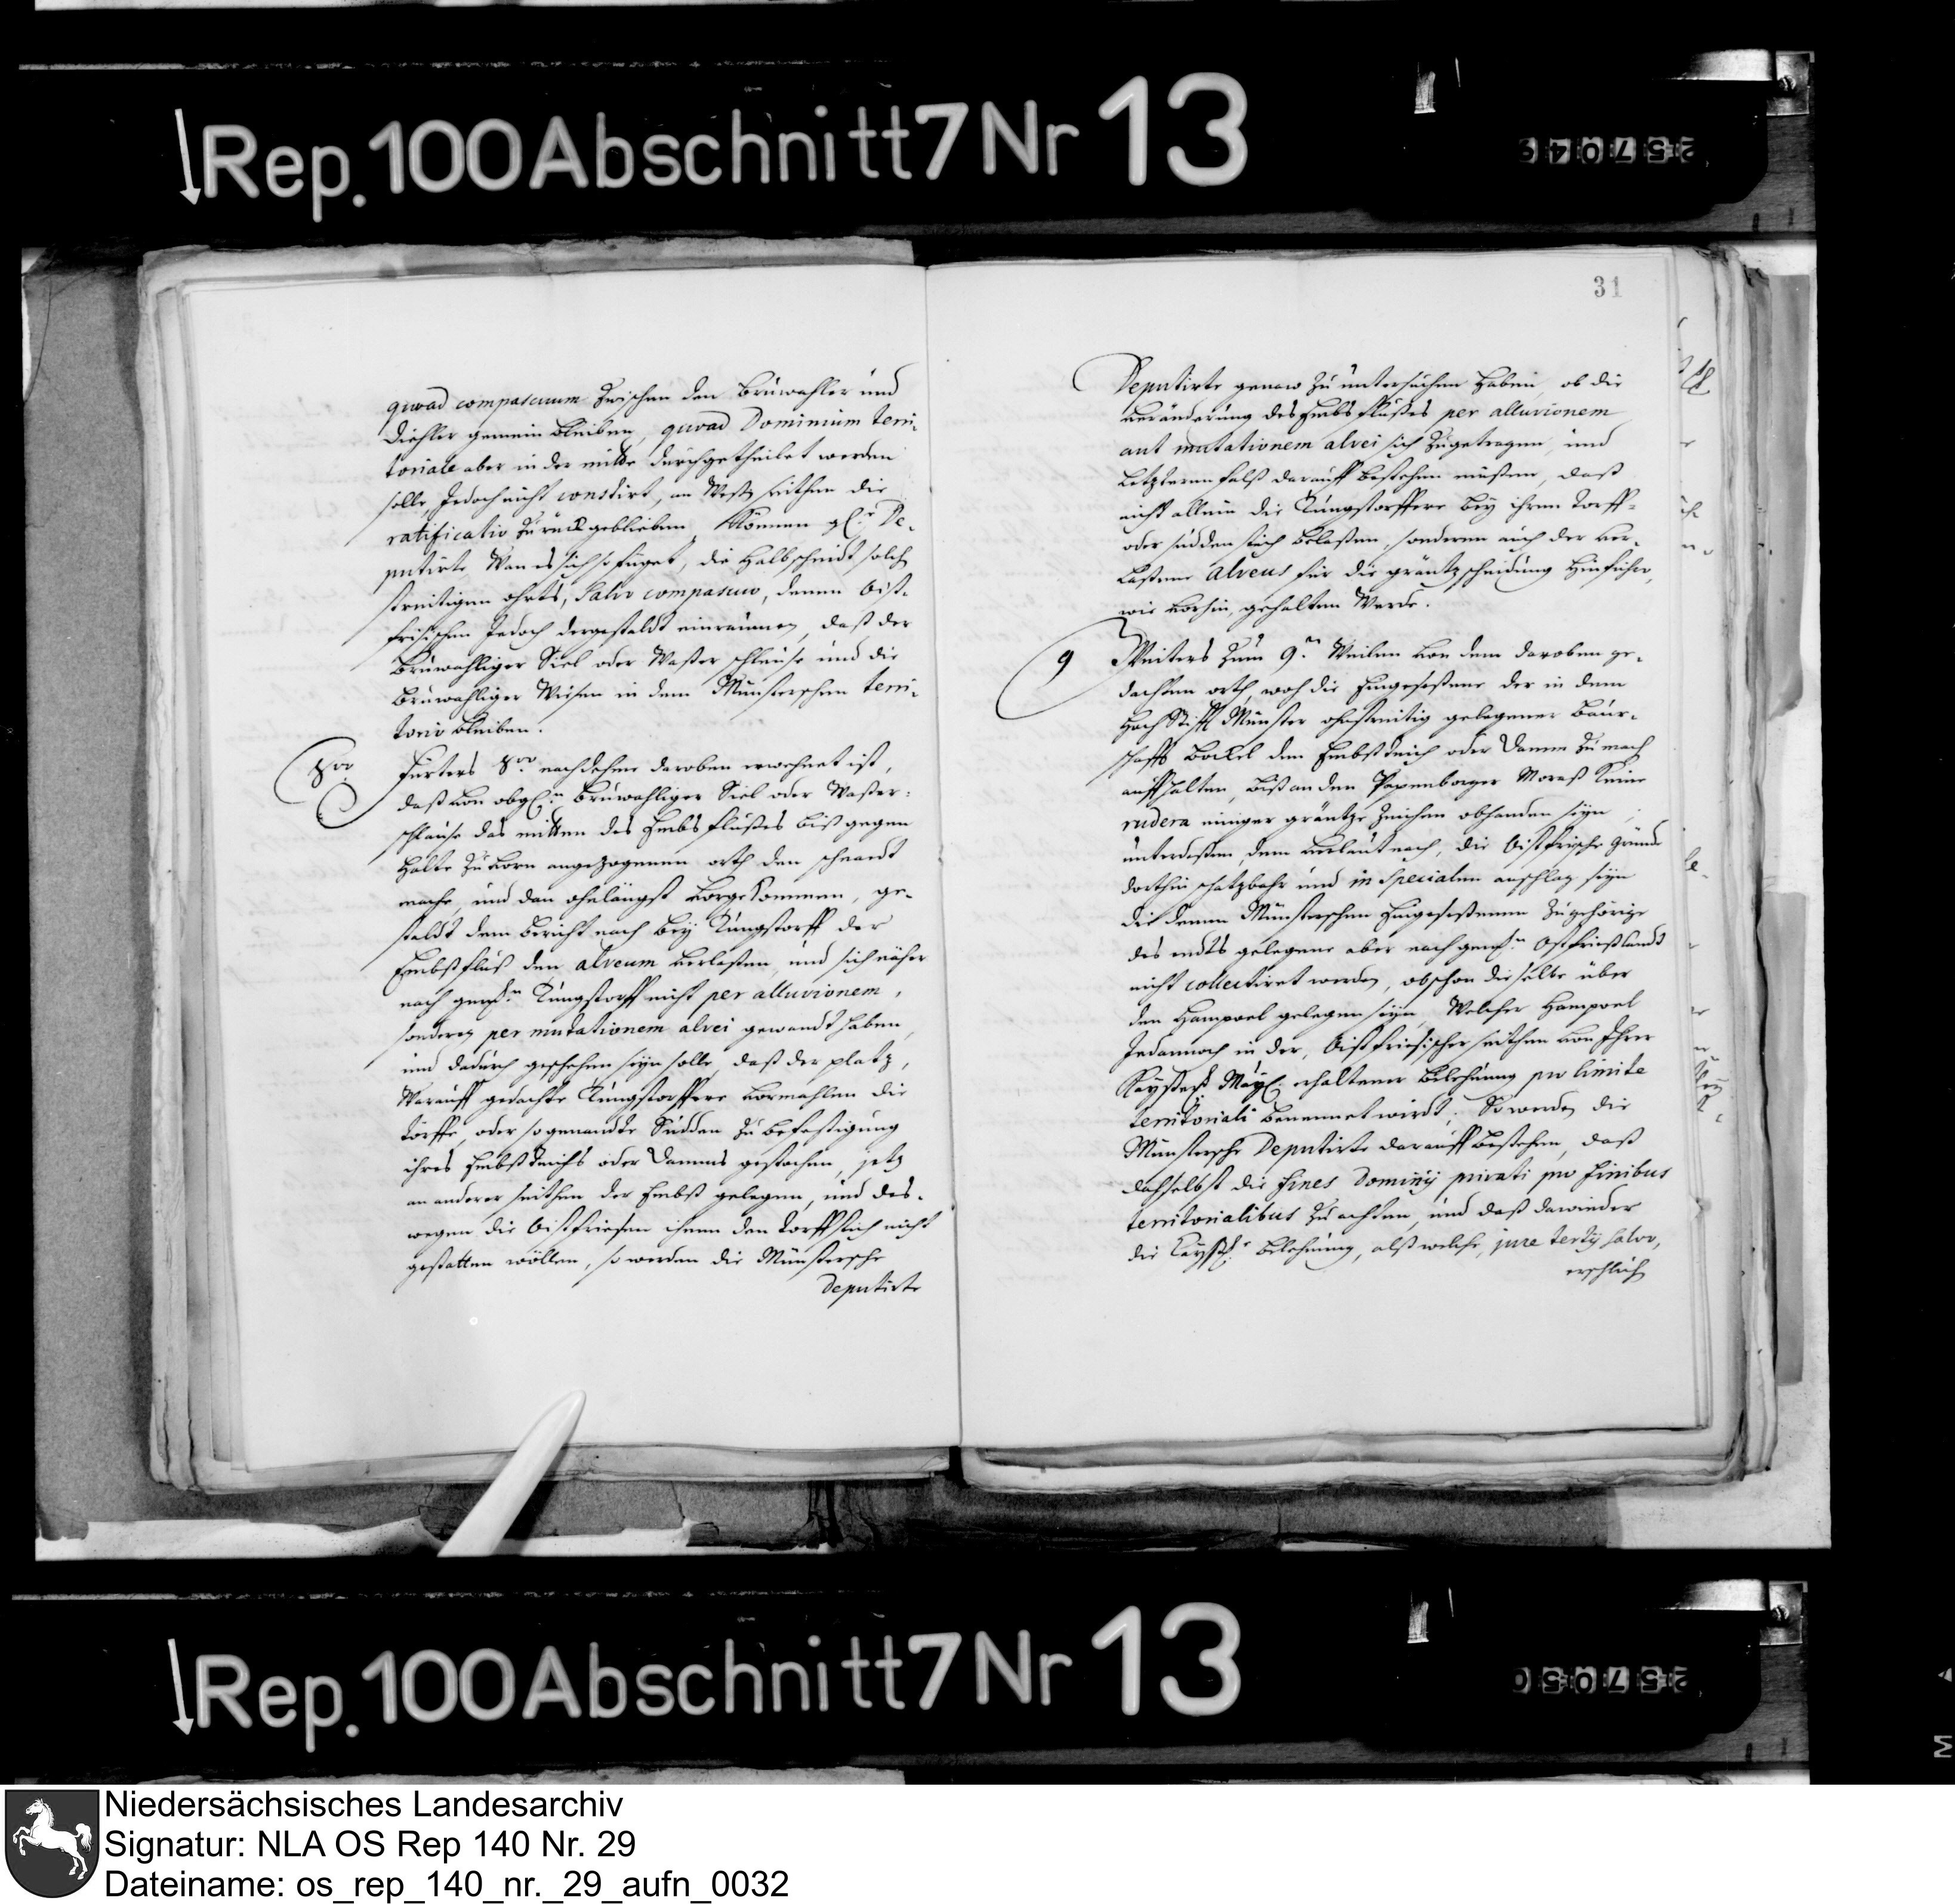 Rep.100Abschnitt7Nr 13
257049
31
quoad compascuum zwischen den Brüwahler und
Diehler gemein bleiben, quoad Dominium terri-
toriale aber in der mitte durchgetheilet werden
solle, Jedoch nicht constirt, an West seithen die
ratificatio zurückgeblieben, Können gl.r De-
putirte, Wan es sich so füget, die Halbscheidt solch
streitigen ohrts, Salvo compascuo, denen Ost-
frisischen Jedoch dergestaldt einraumen, daß der
Brüwahliger Siel oder Waßer schleuse und die
Brüwahliger Wiesen in dem Münsterschen terri-
torio bleiben.
8vo
Fürters 8vo nachdehme daroben erwehnet ist,
daß von obgl.n Brüwahliger Siel oder Waßer-
schleuse das mitten des Embs flußes biß gegen
Halte zu vorn angezogenen orth den schnaedt
mache, und dan ohnlängst vorgekommen, ge-
staldt dem Bericht nach bey Tüngstorff der
Embstfluß den alveum verlaßen, und sich näher
nach gem.n Tüngstorff nicht per alluvionem,
sonderen per mutationem alvei gewandt haben,
und dadurch geschehen seyn solle, daß der platz,
Warauff gedachte Tüngstorffere vormahlen die
törffe, oder so genandte Südden zu befestigung
ihres Embstdeichs oder Damms gestochen, jetz
an anderer seithen der Embst gelegen, und des-
wegen die Ostfriesen ihnen den torffstich nicht
gestatten wöllen, so werden die Münstersche
Deputirte
Deputirte genaw zu untersuchen haben, ob die
veränderung des Embs flußes per alluvionem
aut mutationem alvei sich zugetragen, und
Letzteren falß darauff bestehen müßen, daß
nicht allein die Tüngstorffere bey ihren torff-
oder südden stich belaßen, sonderen auch der ver-
laßene alveus für die gräntz scheidung hinführo,
wie vorhin, gehalten werde.
9
Weiters zum 9.n Weilen von dem daroben ge-
dachten orth, woh die Eingeseßene der in dem
Hoch Stifft Münster ohnstreitig gelegener Baur-
schafft Bockel den Embstdeich oder Damm zu mach
auffhalten, biß an den Papenborger Moraß keine
rudera einiger gräntze zeichen obhanden seyn,
unterdeßen, dem verlaut nach, die Ostfrische gründe
dorthin schatzbahr und in specialen anschlag seyn
die denen Münsterschen Eingeseßenen zugehörige
des endts gelegene aber nach gem.n Ostfrießlandt
nicht collectiret werden, obschon dieselbe über
den Hampoel gelegen seyn, Welcher Hampoel
Jedannoch in der, Ostfriesischer seithen von Ihrer
Kayserl. May. erhaltener Belehnung pro limite
territoriali benennet wirdt; So werden die
Münstersche Deputirte darauff bestehen, daß
daselbst die fines Dominij privati pro finibus
territorialibus zu achten, und daß dawieder
die Kayserl. Belehnung, alß welche, jure tertij salvo,
erschlich
Rep.100Abschnitt7Nr 13
257050
Niedersächsisches Landesarchiv
Signatur: NLA OS Rep 140 Nr. 29
Dateiname: os_rep_140_nr._29_aufn_0032